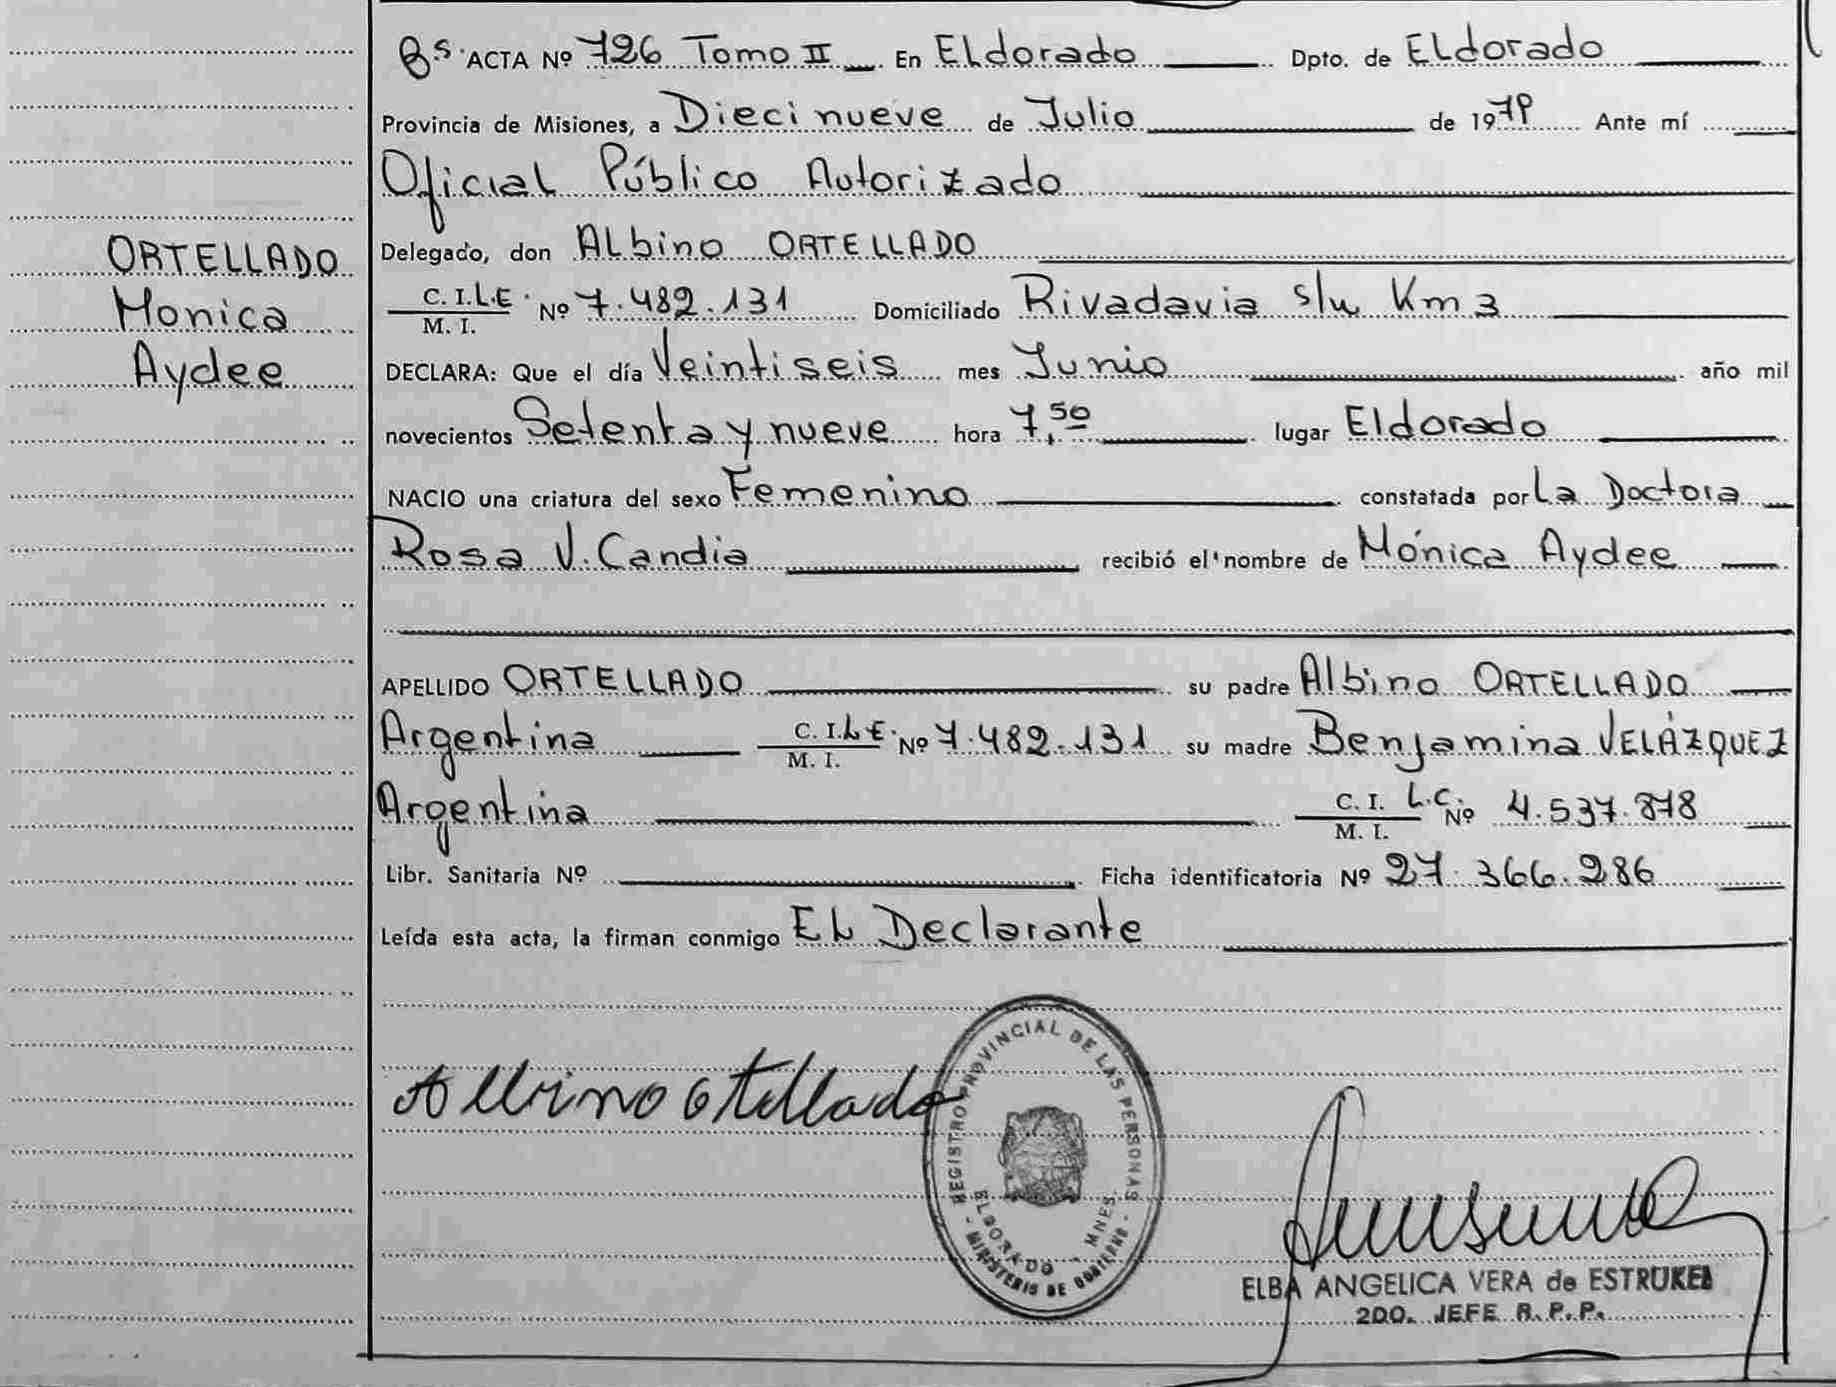 ORTELLADO
Monica
Aydee
Bs. ACTA Nº 726 Tomo II En Eldorado Dpto. de Eldorado
Provincia de Misiones, a Diecinueve de Julio de 1979 Ante mí
Oficial Público Autorizado
Delegado, don Albino ORTELLADO
C. I. L.E. Nº 7.482.131 Domiciliado Rivadavia s/n Km 3
M. I.
DECLARA: Que el día Veintiseis mes Junio año mil
novecientos Setenta y nueve hora 7,50 lugar Eldorado
NACIO una criatura del sexo Femenino constatada por La Doctora
Rosa V. Candia recibió el nombre de Mónica Aydee
APELLIDO ORTELLADO su padre Albino ORTELLADO
Argentina C. I. L.E. Nº 7.482.131 su madre Benjamina VELÁZQUEZ
M. I.
Argentina C. I. L.C. Nº 4.537.878
M. I.
Libr. Sanitaria Nº Ficha identificatoria Nº 27.366.286
Leída esta acta, la firman conmigo El Declarante
Albino Otellado
REGISTRO PROVINCIAL DE LAS PERSONAS
ELDORADO - MNES.
- MINISTERIO DE GOBIERNO -
ELBA ANGELICA VERA de ESTRUKEL
2DO. JEFE R. P. P.